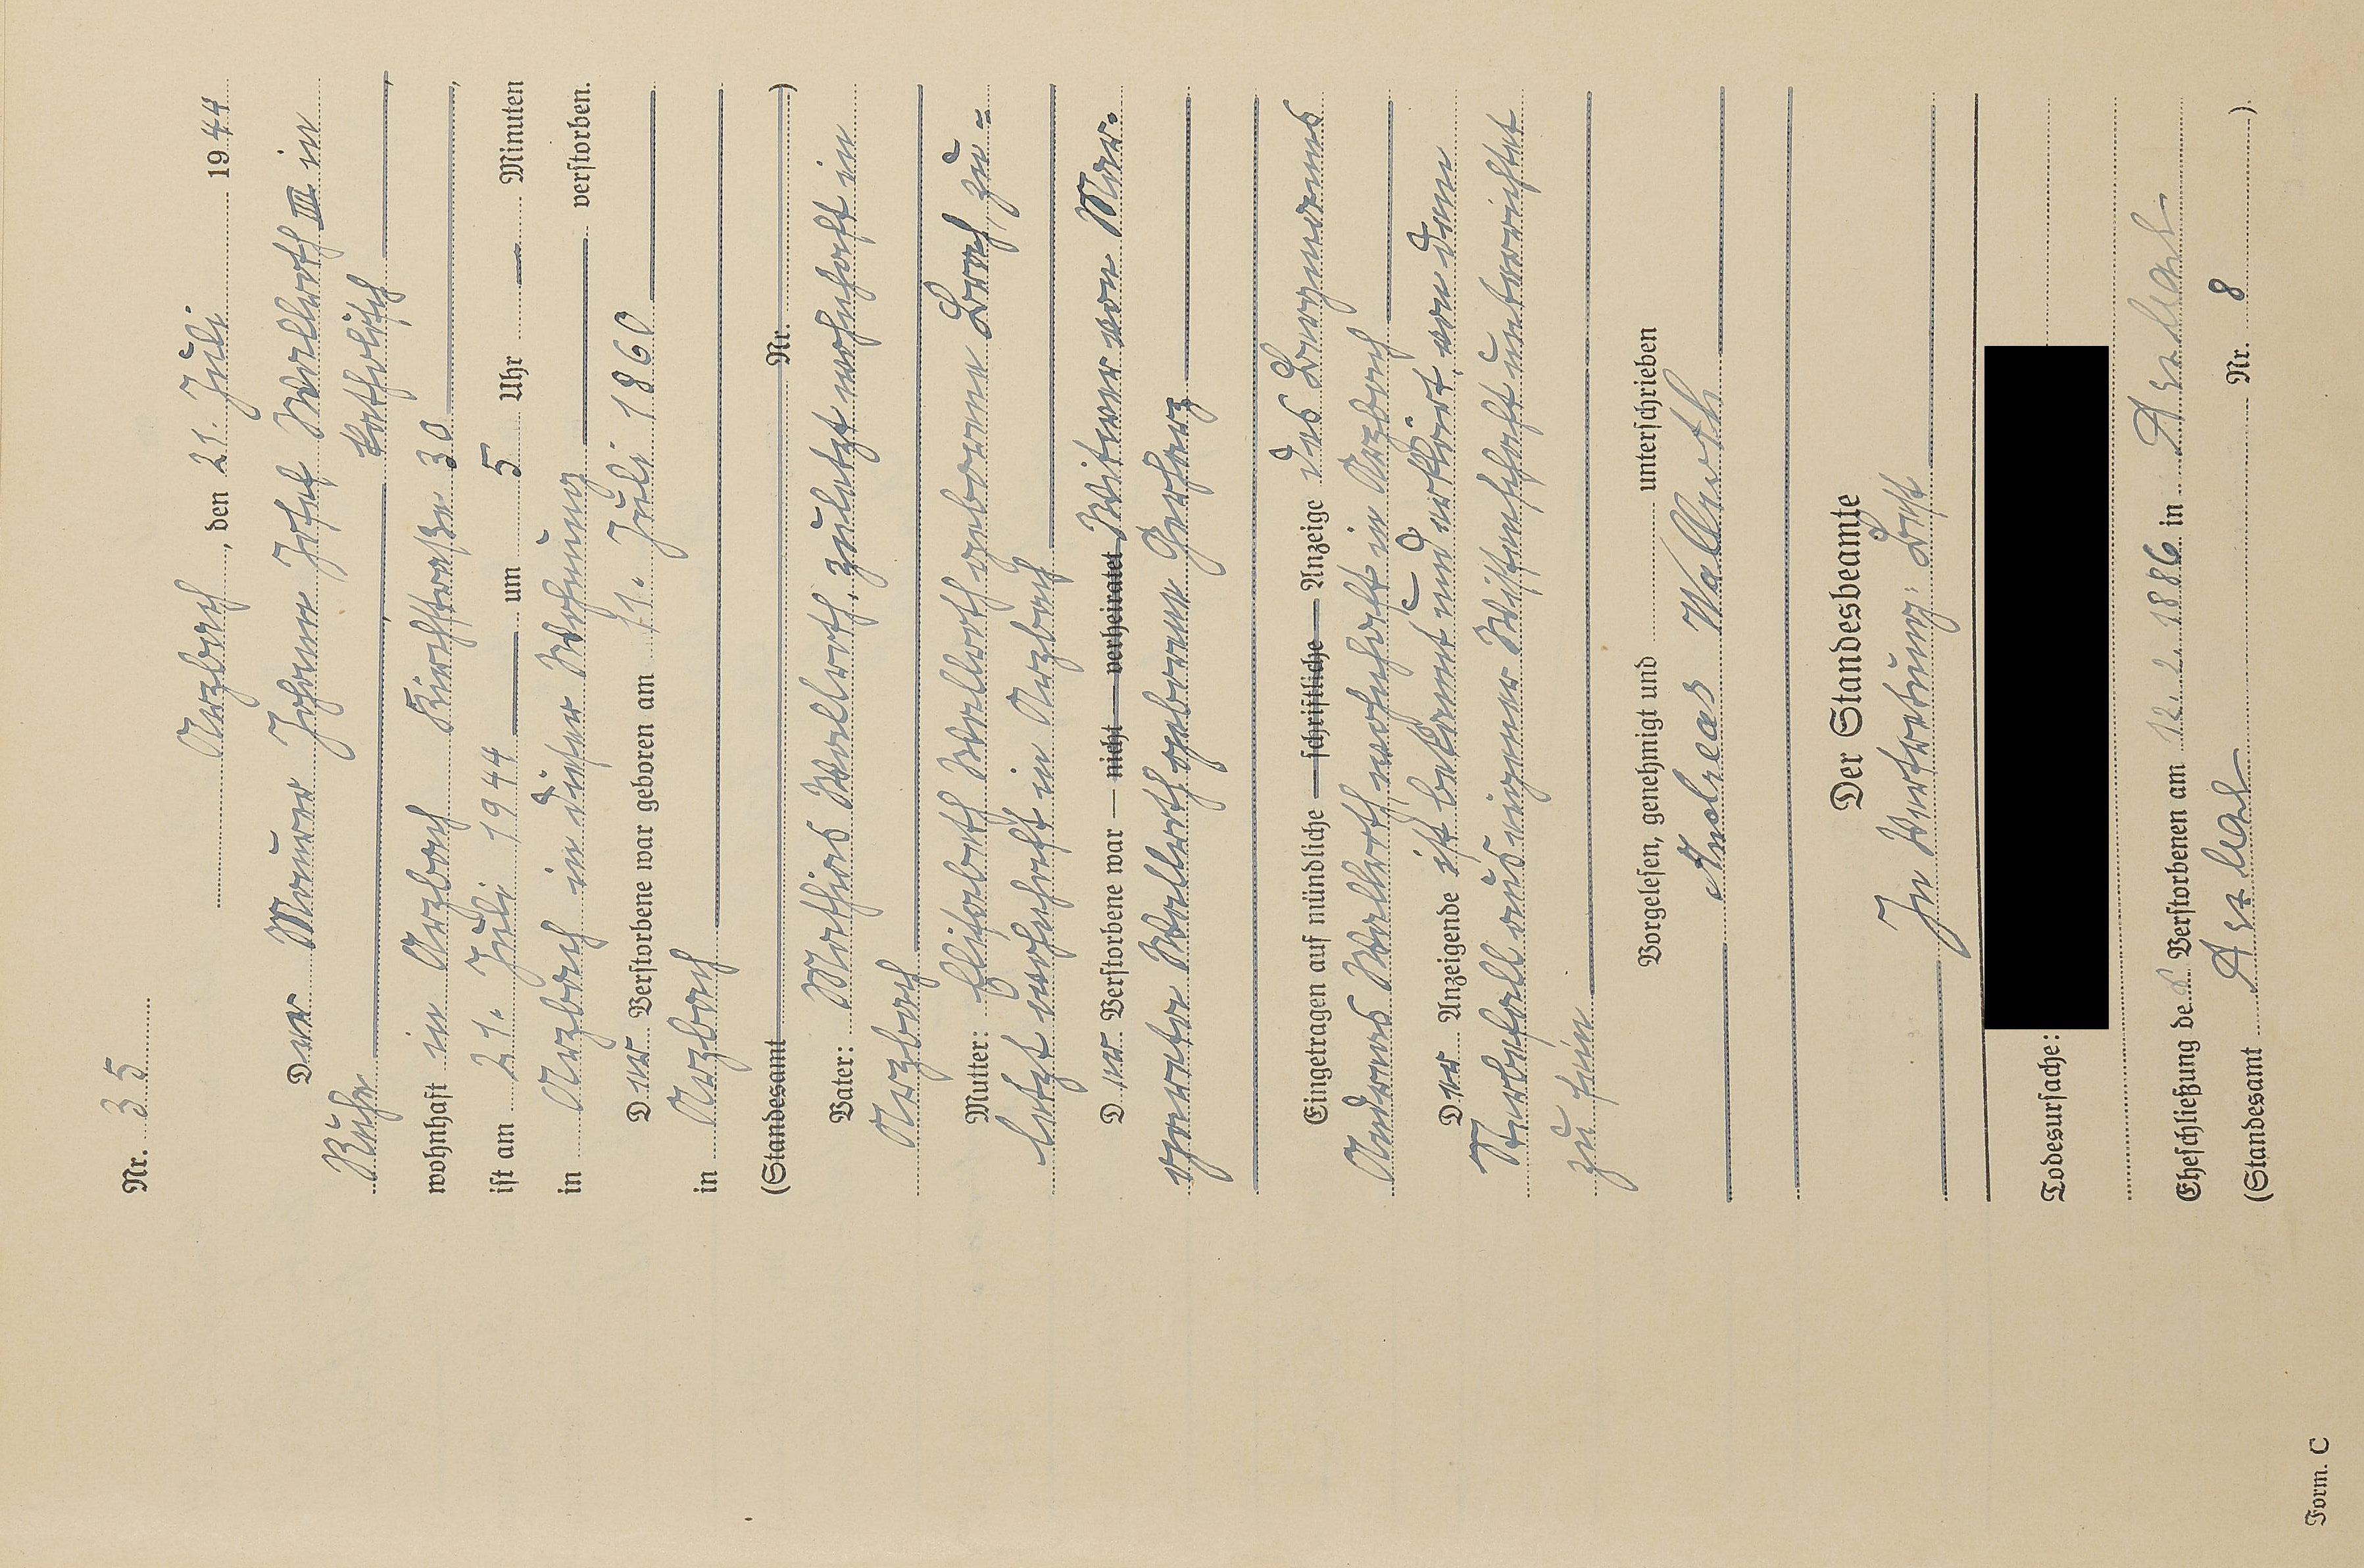 Nr. 35
Arzbach, den 21. Juli 1944
Der Maurer Johann Josef Wallroth III in
Ruhe, katholisch,
wohnhaft in Arzbach Kirchstraße 30,
ist am 21. Juli 1944 um 5 Uhr — Minuten
in Arzbach in dieser Wohnung verstorben.
Der Verstorbene war geboren am 11. Juli 1860
in Arzbach
(Standesamt Nr. )
Vater: Mathias Wallroth, zuletzt wohnhaft in
Arzbach
Mutter: Elisabeth Wallroth geborene Bach zu=
letzt wohnhaft in Arzbach
Der Verstorbene war — nicht — verheiratet Witwer von Mar-
garete Wallroth geborene Gerharz
Eingetragen auf mündliche — schriftliche — Anzeige des Bergmanns
Andreas Wallroth wohnhaft in Arzbach
Der Anzeigende ist bekannt und erklärt, von dem
Sterbefall aus eigener Wissenschaft unterrichtet
zu sein
Vorgelesen, genehmigt und unterschrieben
Andreas Wallroth
Der Standesbeamte
In Vertretung:
Todesursache:
Eheschließung des Verstorbenen am 12.2.1886 in Arzbach
(Standesamt Arzbach Nr. 8 ).
Form. C